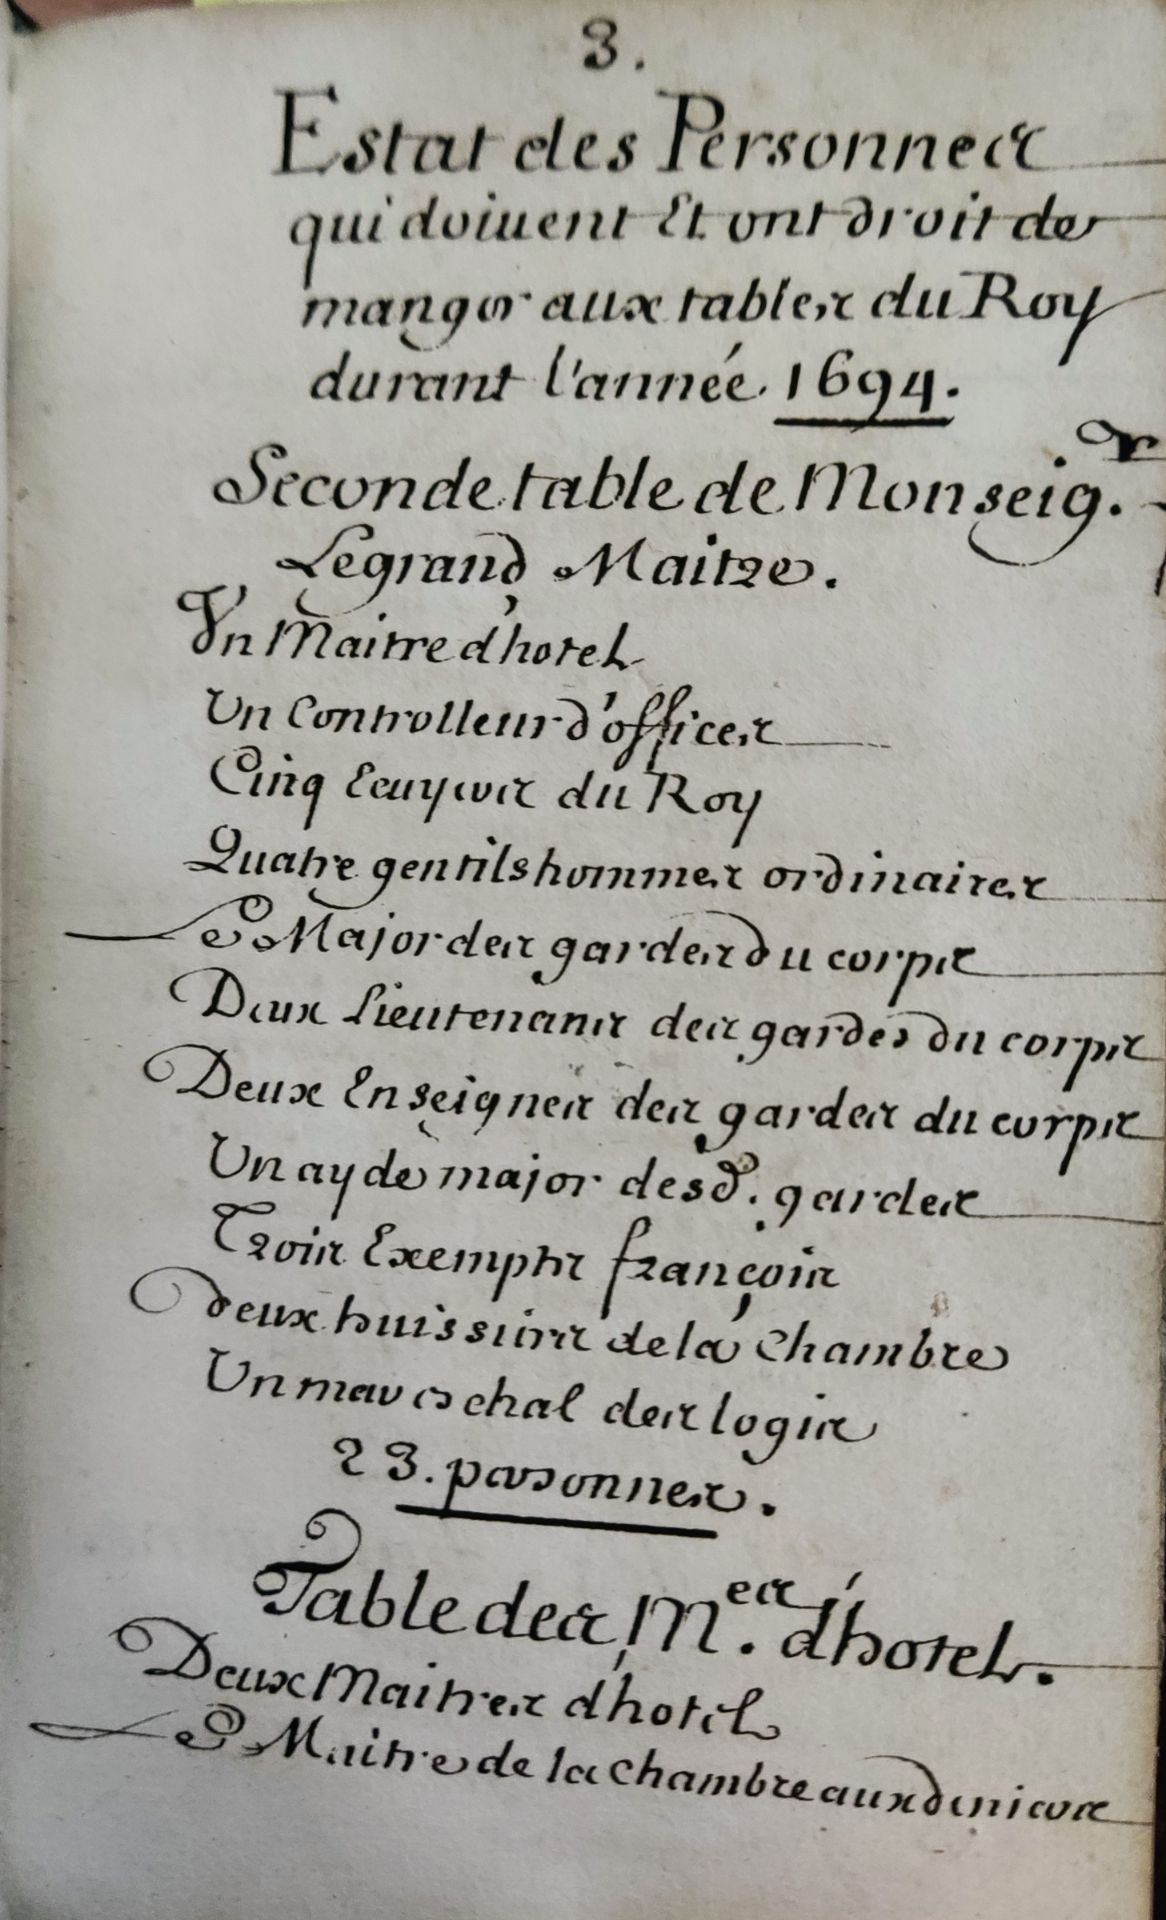 3.
Estat des Personnes
qui doiuent Et ont droit de
manger aux tables du Roy
durant l'année 1694.
Seconde table de Monseig.r
Le grand Maitre.
Vn Maitre d'hotel
Un Controlleur d'offices
Cinq Ecuyers du Roy
Quatre gentilshommes ordinaires
Le Major des gardes du corps
Deux Lieutenans des gardes du corps
Deux Enseignes des gardes du corps
Un ayde major desd. gardes
Trois Exempts françois
deux huissiers de la Chambre
Un mareschal des logis
23. personnes.
Table des M.es d'hotel.
Deux Maitres d'hotel
Le Maitre de la Chambre aux deniers